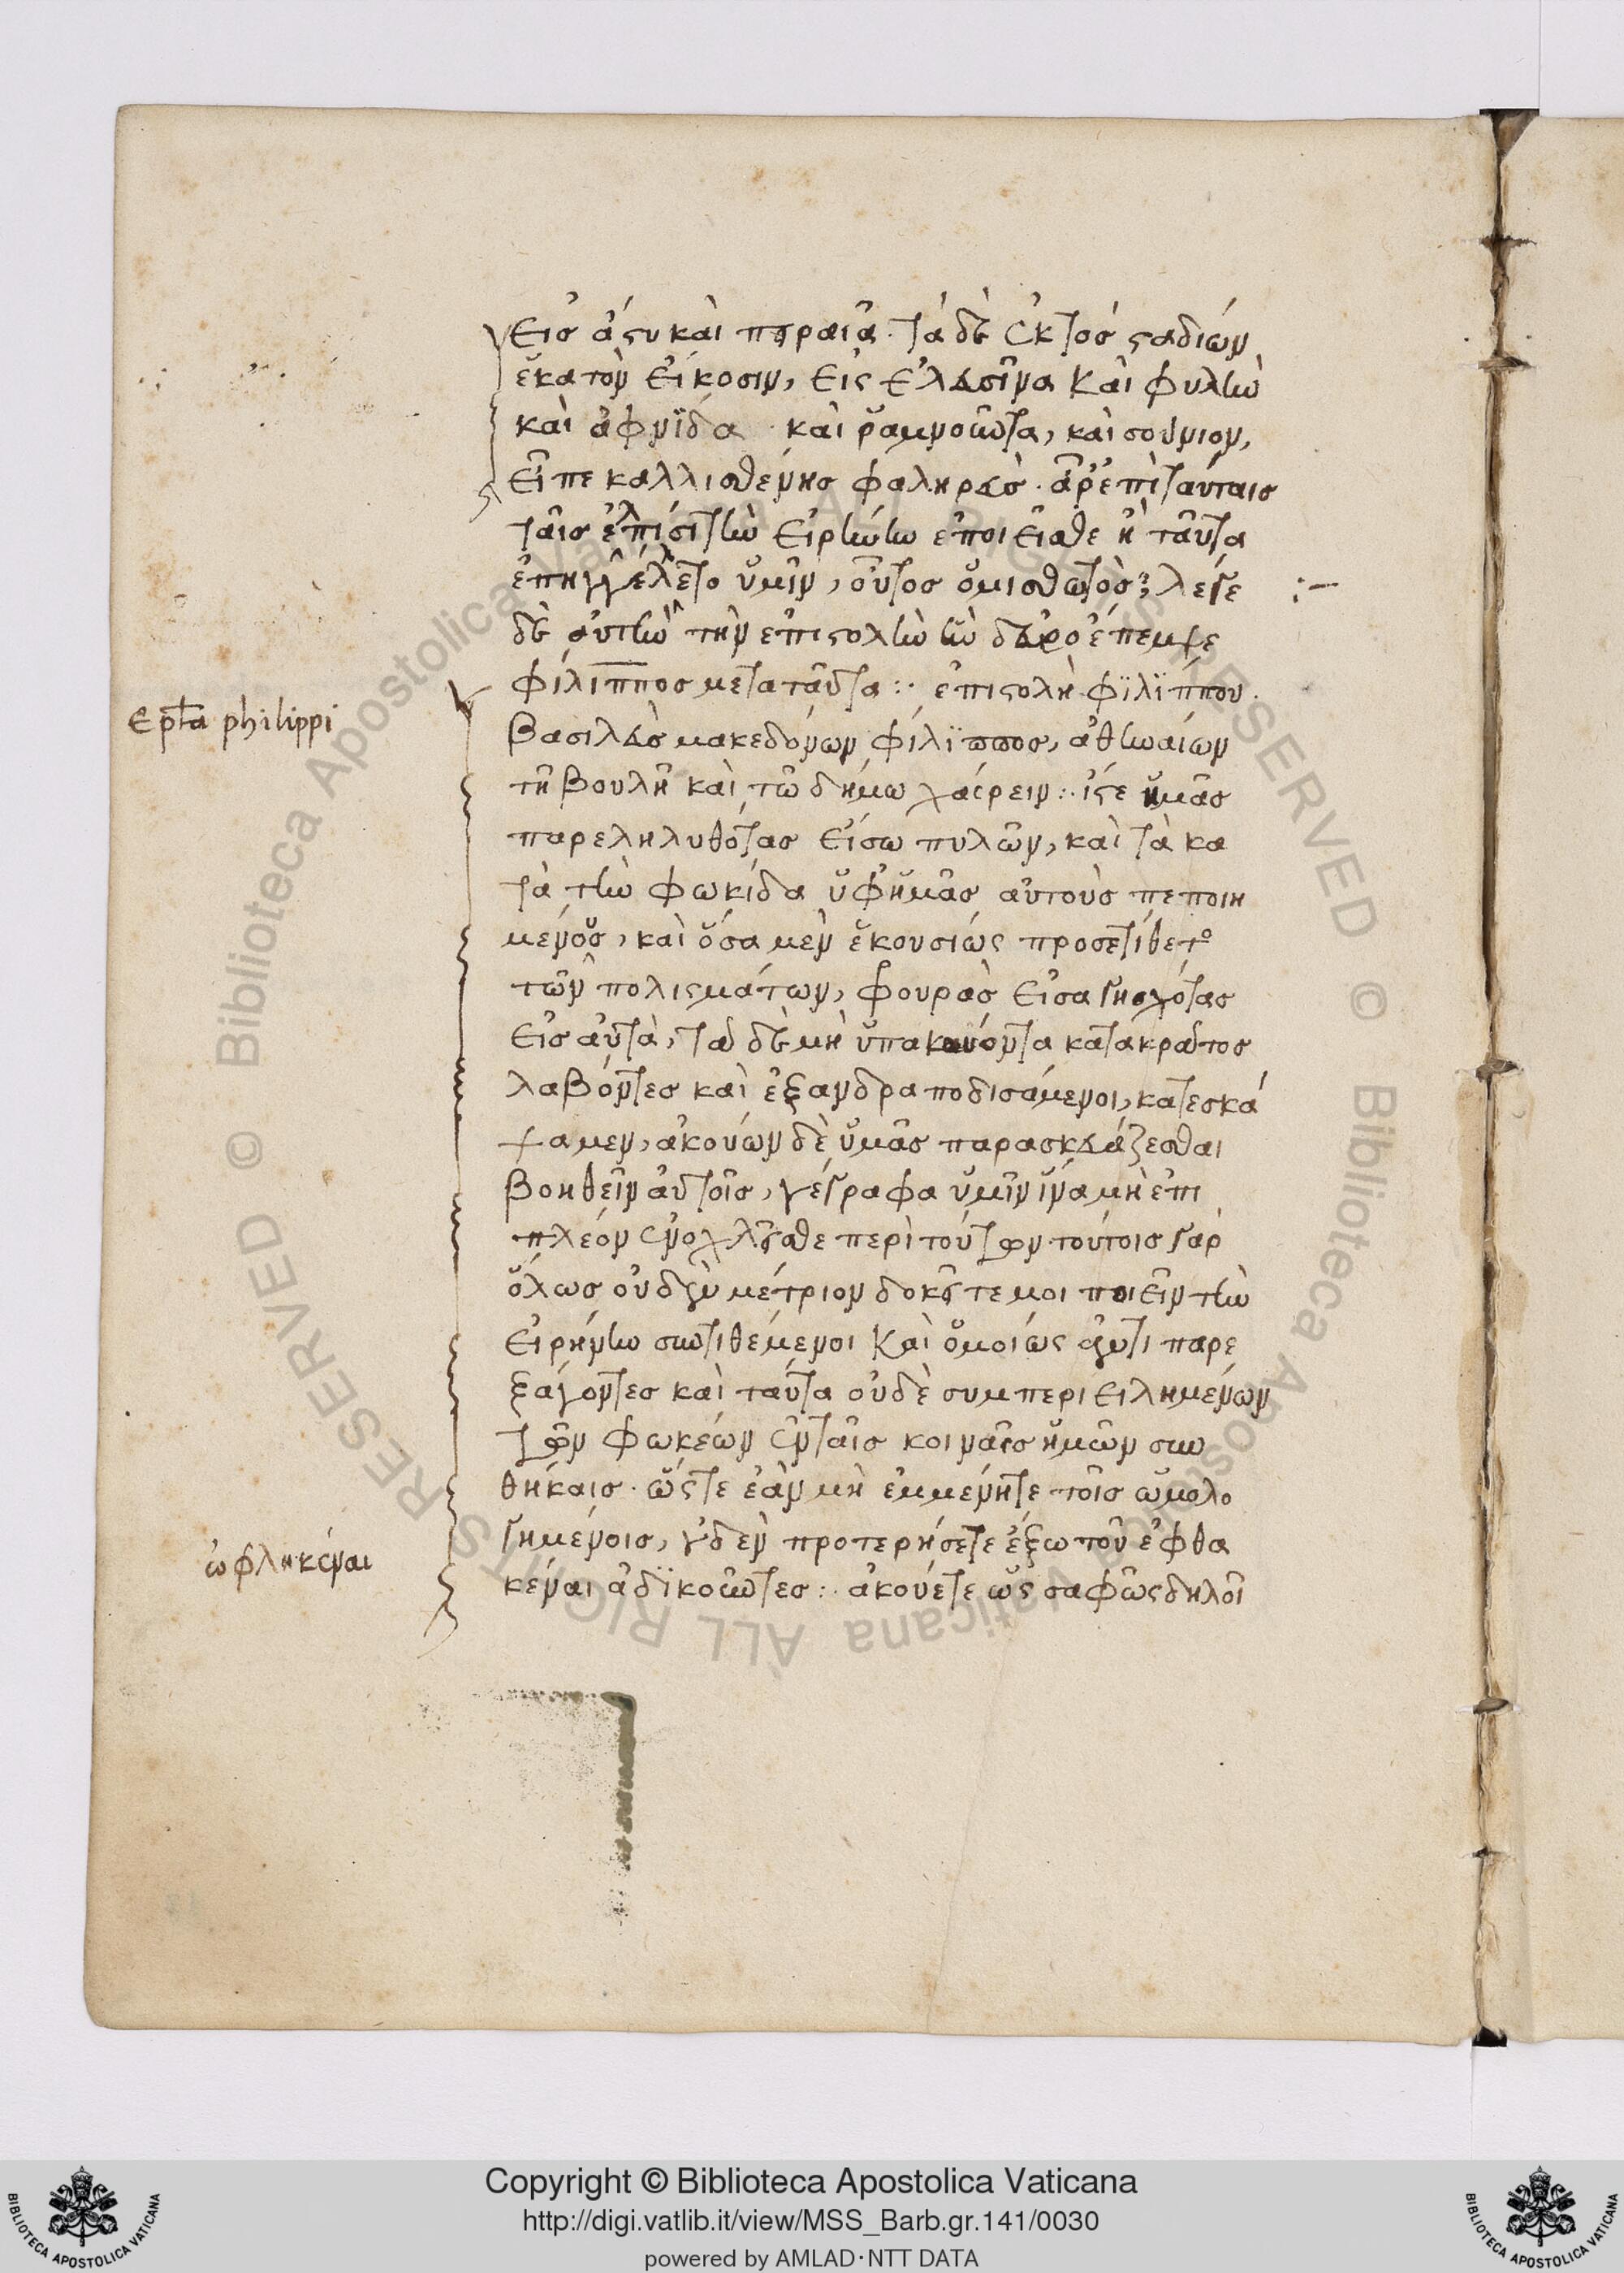 εἰς ἄστυ καὶ πειραιᾶ. τὰ δὲ ἐκτὸς σταδίων
ἑκατὸν εἴκοσιν, εἰς ἐλευσῖνα καὶ φυλὴν
καὶ ἀφνΐδα καὶ ῥαμνοῦντα, καὶ σούνιον,
εἶπε καλλισθένης φαληρεὺς. ἆρ' ἐπὶ ταύταις
ταῖς ἐλπίσι τὴν εἰρήνην ἐποιεῖσθε ἢ ταῦτα
ἐπηγγέλλετο ὑμῖν, οὗτος ὁ μισθωτὸς; λέγε
δὲ αὐτὴν τὴν ἐπιστολὴν ἣν δεῦρο ἔπεμψε
φίλιππος μετὰ ταῦτα :· ἐπιστολὴ φϊλΐππου.
βασιλεὺς μακεδόνων φίλϊππος, ἀθηναίων
τῆ βουλῆ καὶ τῶ δήμω χαίρειν :· ἴστε ἡμᾶς
παρεληλυθότας εἴσω πυλῶν, καὶ τὰ κα
τὰ τὴν φωκίδα ὑφ' ἡμᾶς αὐτοὺς πεποιη
μένους, καὶ ὅσα μὲν ἑκουσίως προσετίθετο
τῶν πολισμάτων, φρουρὰς εἰσαγηοχότας
εἰς αὐτὰ, τὰ δὲ μὴ ὑπακούοντα κατακράτος
λαβόντες καὶ ἐξανδραποδισάμενοι, κατεσκά
ψαμεν, ἀκούων δὲ ὑμᾶς παρασκευάζεσθαι
βοηθεῖν αὐτοῖς, γέγραφα ὑμῖν ἵνα μὴ ἐπι
πλέον ἐνοχλεῖσθε περὶ τούτων· τούτοις γὰρ
ὅλως οὐδὲν μέτριον δοκεῖτε μοι ποιεῖν τὴν
εἰρήνην συντιθέμενοι καὶ ὁμοίως ἀντιπαρε
ξάγοντες καὶ ταῦτα οὐδὲ συμπεριειλημένων
τῶν φωκέων ἐν ταῖς κοιναῖς ἡμῶν συν
θήκαις. ὥστε ἐὰν μὴ ἐμμένητε τοῖς ὡμολο
γημένοις, οὐδὲν προτερήσετε ἔξω τοῦ ἐφθα
κέναι ἀδϊκοῦντες :· ἀκούετε ὡς σαφῶς δηλοῖ
Ep(isto)la philippi
ὠφληκέναι
Copyright © Biblioteca Apostolica Vaticana
http://digi.vatlib.it/view/MSS_Barb.gr.141/0030
powered by AMLAD·NTT DATA
BIBLIOTECA APOSTOLICA VATICANA
BIBLIOTECA APOSTOLICA VATICANA
© Biblioteca Apostolica Vaticana ALL RIGHTS RESERVED © Biblioteca Apostolica Vaticana ALL RIGHTS RESERVED